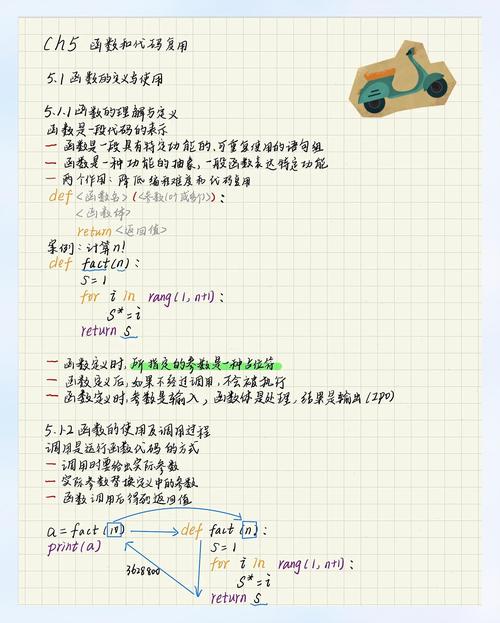 Ch5 函数和代码复用
5.1 函数的定义与使用
5.1.1 函数的理解与定义
函数是一段代码的表示
一 函数是一段具有特定功能的、可重复使用的语句组
一 函数是一种功能的抽象，一般函数表达特定功能
一 两个作用：降低编程难度和代码复用
def <函数名> (<参数(0个或多个)>) :
<函数体>
return <返回值>
案例：计算n!
def fact(n) :
s = 1
for i in rang(1, n+1) :
s* = i
return s
一 函数定义时，所指定的参数是一种占位符
一 函数定义后，如果不经过调用，不会被执行
一 函数定义时，参数是输入，函数体是处理，结果是输出 (IPO)
5.1.2 函数的使用及调用过程
调用是运行函数代码的方式
一 调用时要给出实际参数
一 实际参数替换定义中的参数
一 函数调用后得到返回值
a = fact(10) def fact(n) :
print(a) s = 1
for i in rang(1, n+1) :
3628800 s* = i
return s